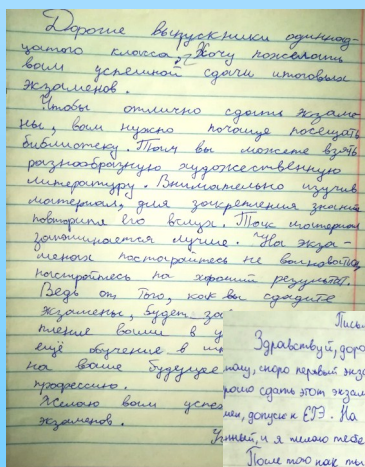 Дорогие выпускники одиннад-
цатого класса, Хочу пожелать
вам успешной сдачи итоговых
экзаменов.
Чтобы отлично сдать экзаме-
ны, вам нужно почаще посещать
библиотеку. Там вы можете взять
разнообразную художественную
литературу. Внимательно изучив
материал, для закрепления знаний
повторите его вслух. Так материал
запоминается лучше. На экза-
менах постарайтесь не волноваться,
настройтесь на хороший результат.
Ведь от того, как вы сдадите
экзамены, будет
пление ваши в
ещё обучение в
на ваше будущее
профессию.
Желаю вам
экзаменов.
Здравствуй,
скоро первый
сдать этот
допуск к ЕГЭ. На
и я желаю тебе
После того как ты